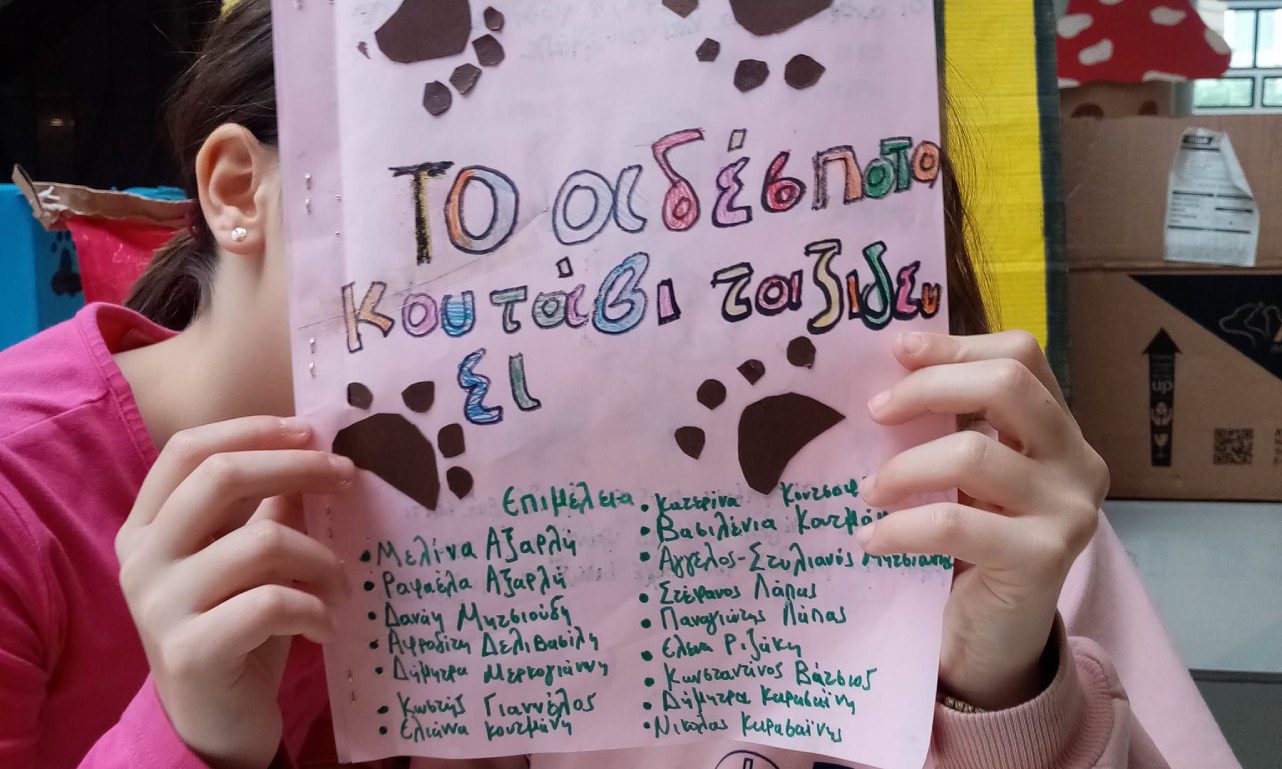 Το αδέσποτο
κουτάβι ταξιδεύ
ει
Επιμέλεια
• Μελίνα Αξαρλή
• Ραφαέλα Αξαρλή
• Δανάη Μητσιούδη
• Αφροδίτη Δελιβασίλη
• Δήμητρα Μερκογιάννη
• Κωστής Γιαννέλος
• Ελιάννα Κουτμάνη
• Κατερίνα
• Βασιλένια
• Άγγελος-Στυλιανός
• Στέφανος Λάπας
• Παναγιώτης Λάπας
• Ελενα Ριζάκη
• Κωνσταντίνος Βάτσιος
• Δήμητρα Καρασαΐνη
• Νικόλας Καρασαΐνης
up